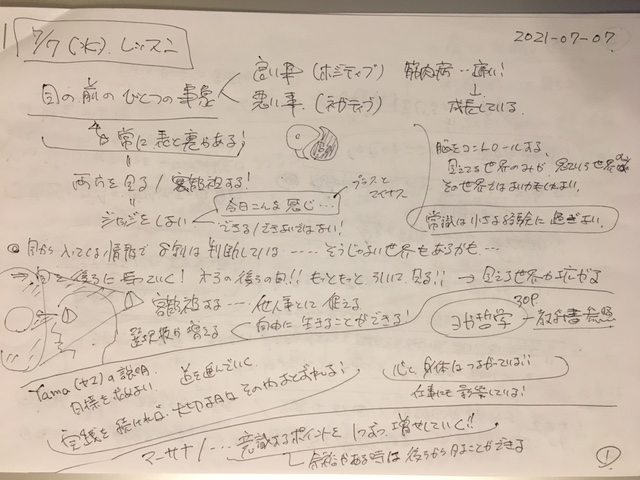 7/7(水). レッスン
2021-07-07
目の前のひとつの事象
良い事 (ポジティブ) 筋肉痛…痛い!
悪い事. (ネガティブ) 成長している.
常に表と裏がある!
両方を見る/客観視する!
プラスとマイナス
今日こんな感じ…
ジャッジをしない
できる/できないではない!
脳をコントロールする,
見えてる世界のみが
その世界ではないかもしれない.
常識は小さな経験に過ぎない.
目から入ってくる情報で 判断している ‥‥ そうじゃない世界もあるかも…
→ 目を後ろに持っていく! 頭の後ろの目!! もっともっと, 引いて見る!! → 見える世界が広がる
客観視する‥‥他人事として捉える
選択肢が増える
自由に生きることができる!
ヨガ哲学 30P 教科書参照
Yama(ヤマ)の説明 道を選んでいく
目標を求めない
実践を続ければ, 大切な日はそのうちおとずれる!
心と身体はつながっている!!
仕事にも影響している!
マーサナ/…意識するポイントを1つずつ増やしていく!!
余裕がある時は後ろから見ることができる
1